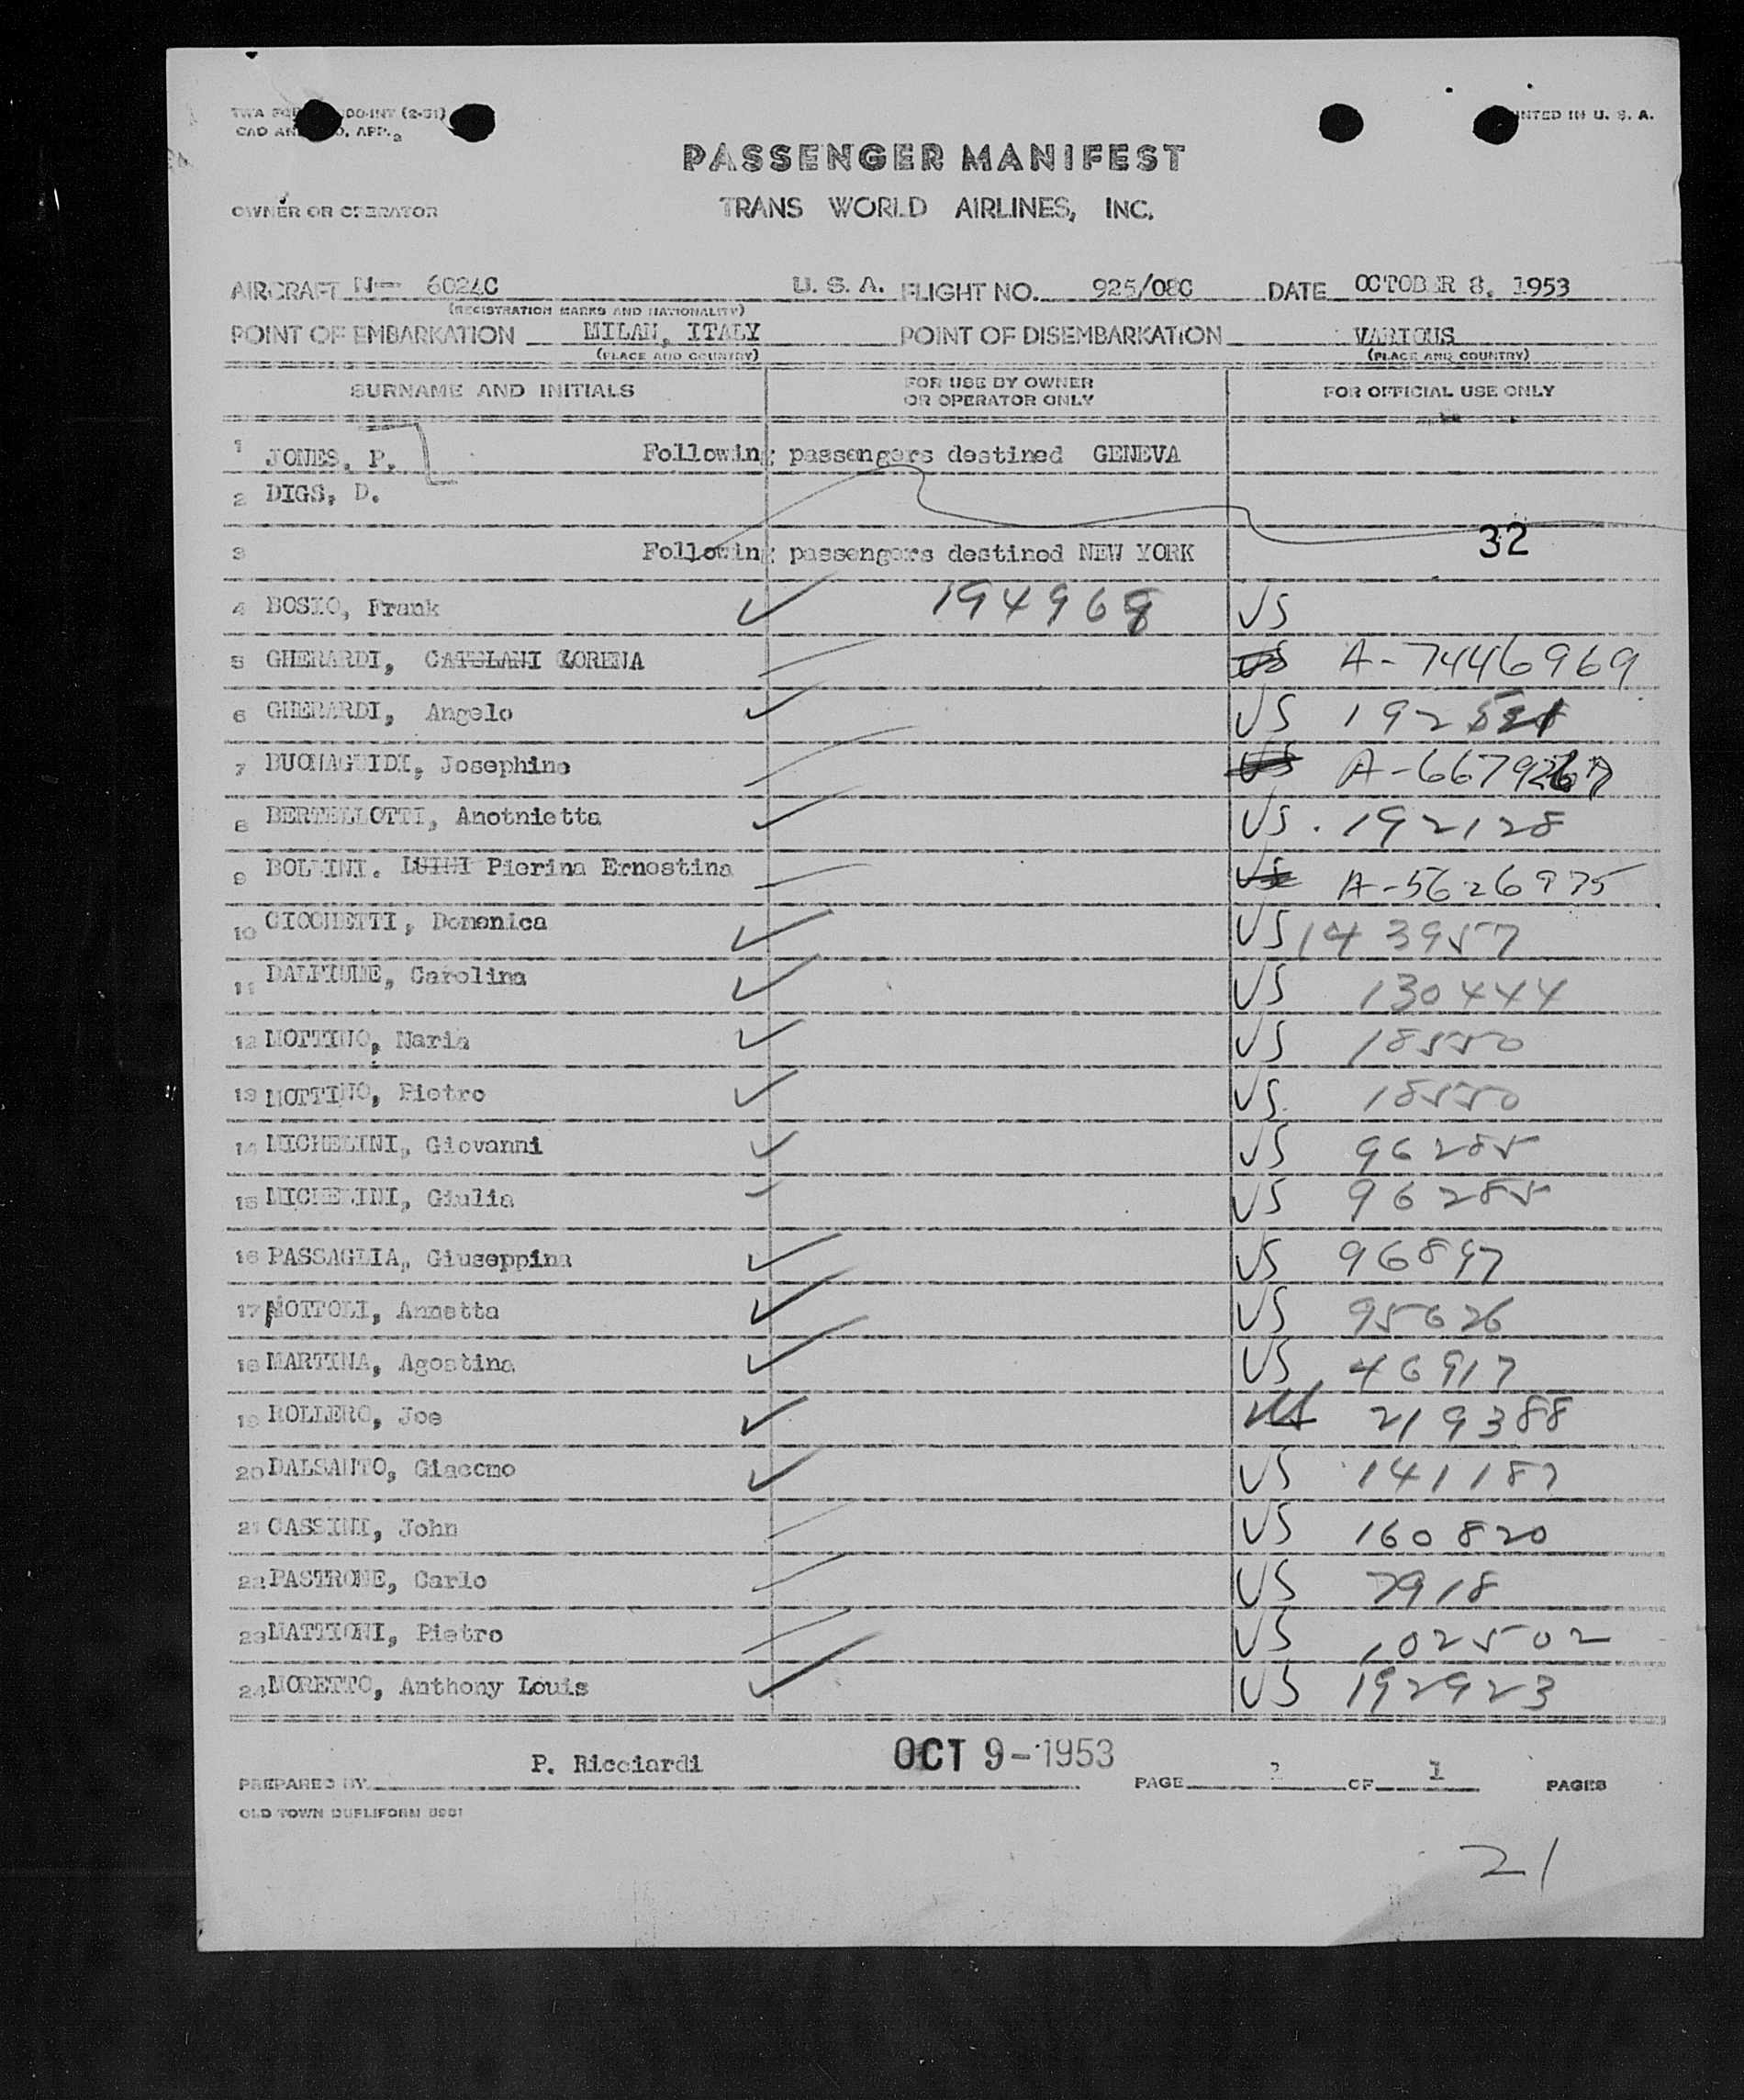 CAD AN O. APP.
NTED IN U. S. A.
PASSENGER MANIFEST
OWNER OR OPERATOR
TRANS WORLD AIRLINES, INC.
AIRCRAFT N- 6024C U. S. A. FLIGHT NO. 925/08C DATE OCTOBER 8, 1953
(REGISTRATION MARKS AND NATIONALITY)
POINT OF EMBARKATION MILAN, ITALY POINT OF DISEMBARKATION VARIOUS
(PLACE AND COUNTRY) (PLACE AND COUNTRY)
SURNAME AND INITIALS FOR USE BY OWNER OR OPERATOR ONLY FOR OFFICIAL USE ONLY
1 JONES, P. Following passengers destined GENEVA
2 DIGS, D.
3 Following passengers destined NEW YORK 32
4 BOSIO, Frank 194968 US
5 GHERARDI, CATULANI LORENA US A-7446969
6 GHERARDI, Angelo US 192
7 BUONAGUIDI, Josephine US A-6679267
8 BERTELLOTTI, Anotnietta US. 192128
9 LUIGI Pierina Ernestina US A-5626975
10 CICCHETTI, Domenica US 143957
11 Carolina US 130444
12 MOTTINO, Maria US 18550
13 MOTTINO, Pietro US. 18550
14 MICHELINI, Giovanni US 96285
15 MICHELINI, Giulia US 96285
16 PASSAGLIA, Giuseppina US 96897
17 NOTTOLI, Annetta US 95626
18 MARTINA, Agostina US 46917
19 ROLLERO, Joe US 219388
20 DALSANTO, Giacomo US 141187
21 CASSINI, John US 160820
22 PASTRONE, Carlo US 7918
23 MATTIONI, Pietro US 102502
24 MORETTO, Anthony Louis US 192923
PREPARED BY P. Ricciardi OCT 9-1953 PAGE OF 1 PAGES
OLD TOWN DUPLIFORM
21